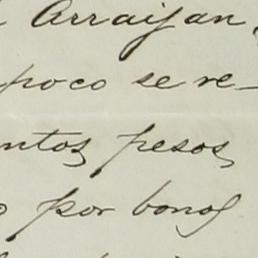 Arraijan,
poco se re-
ntos pesos
o por bonos